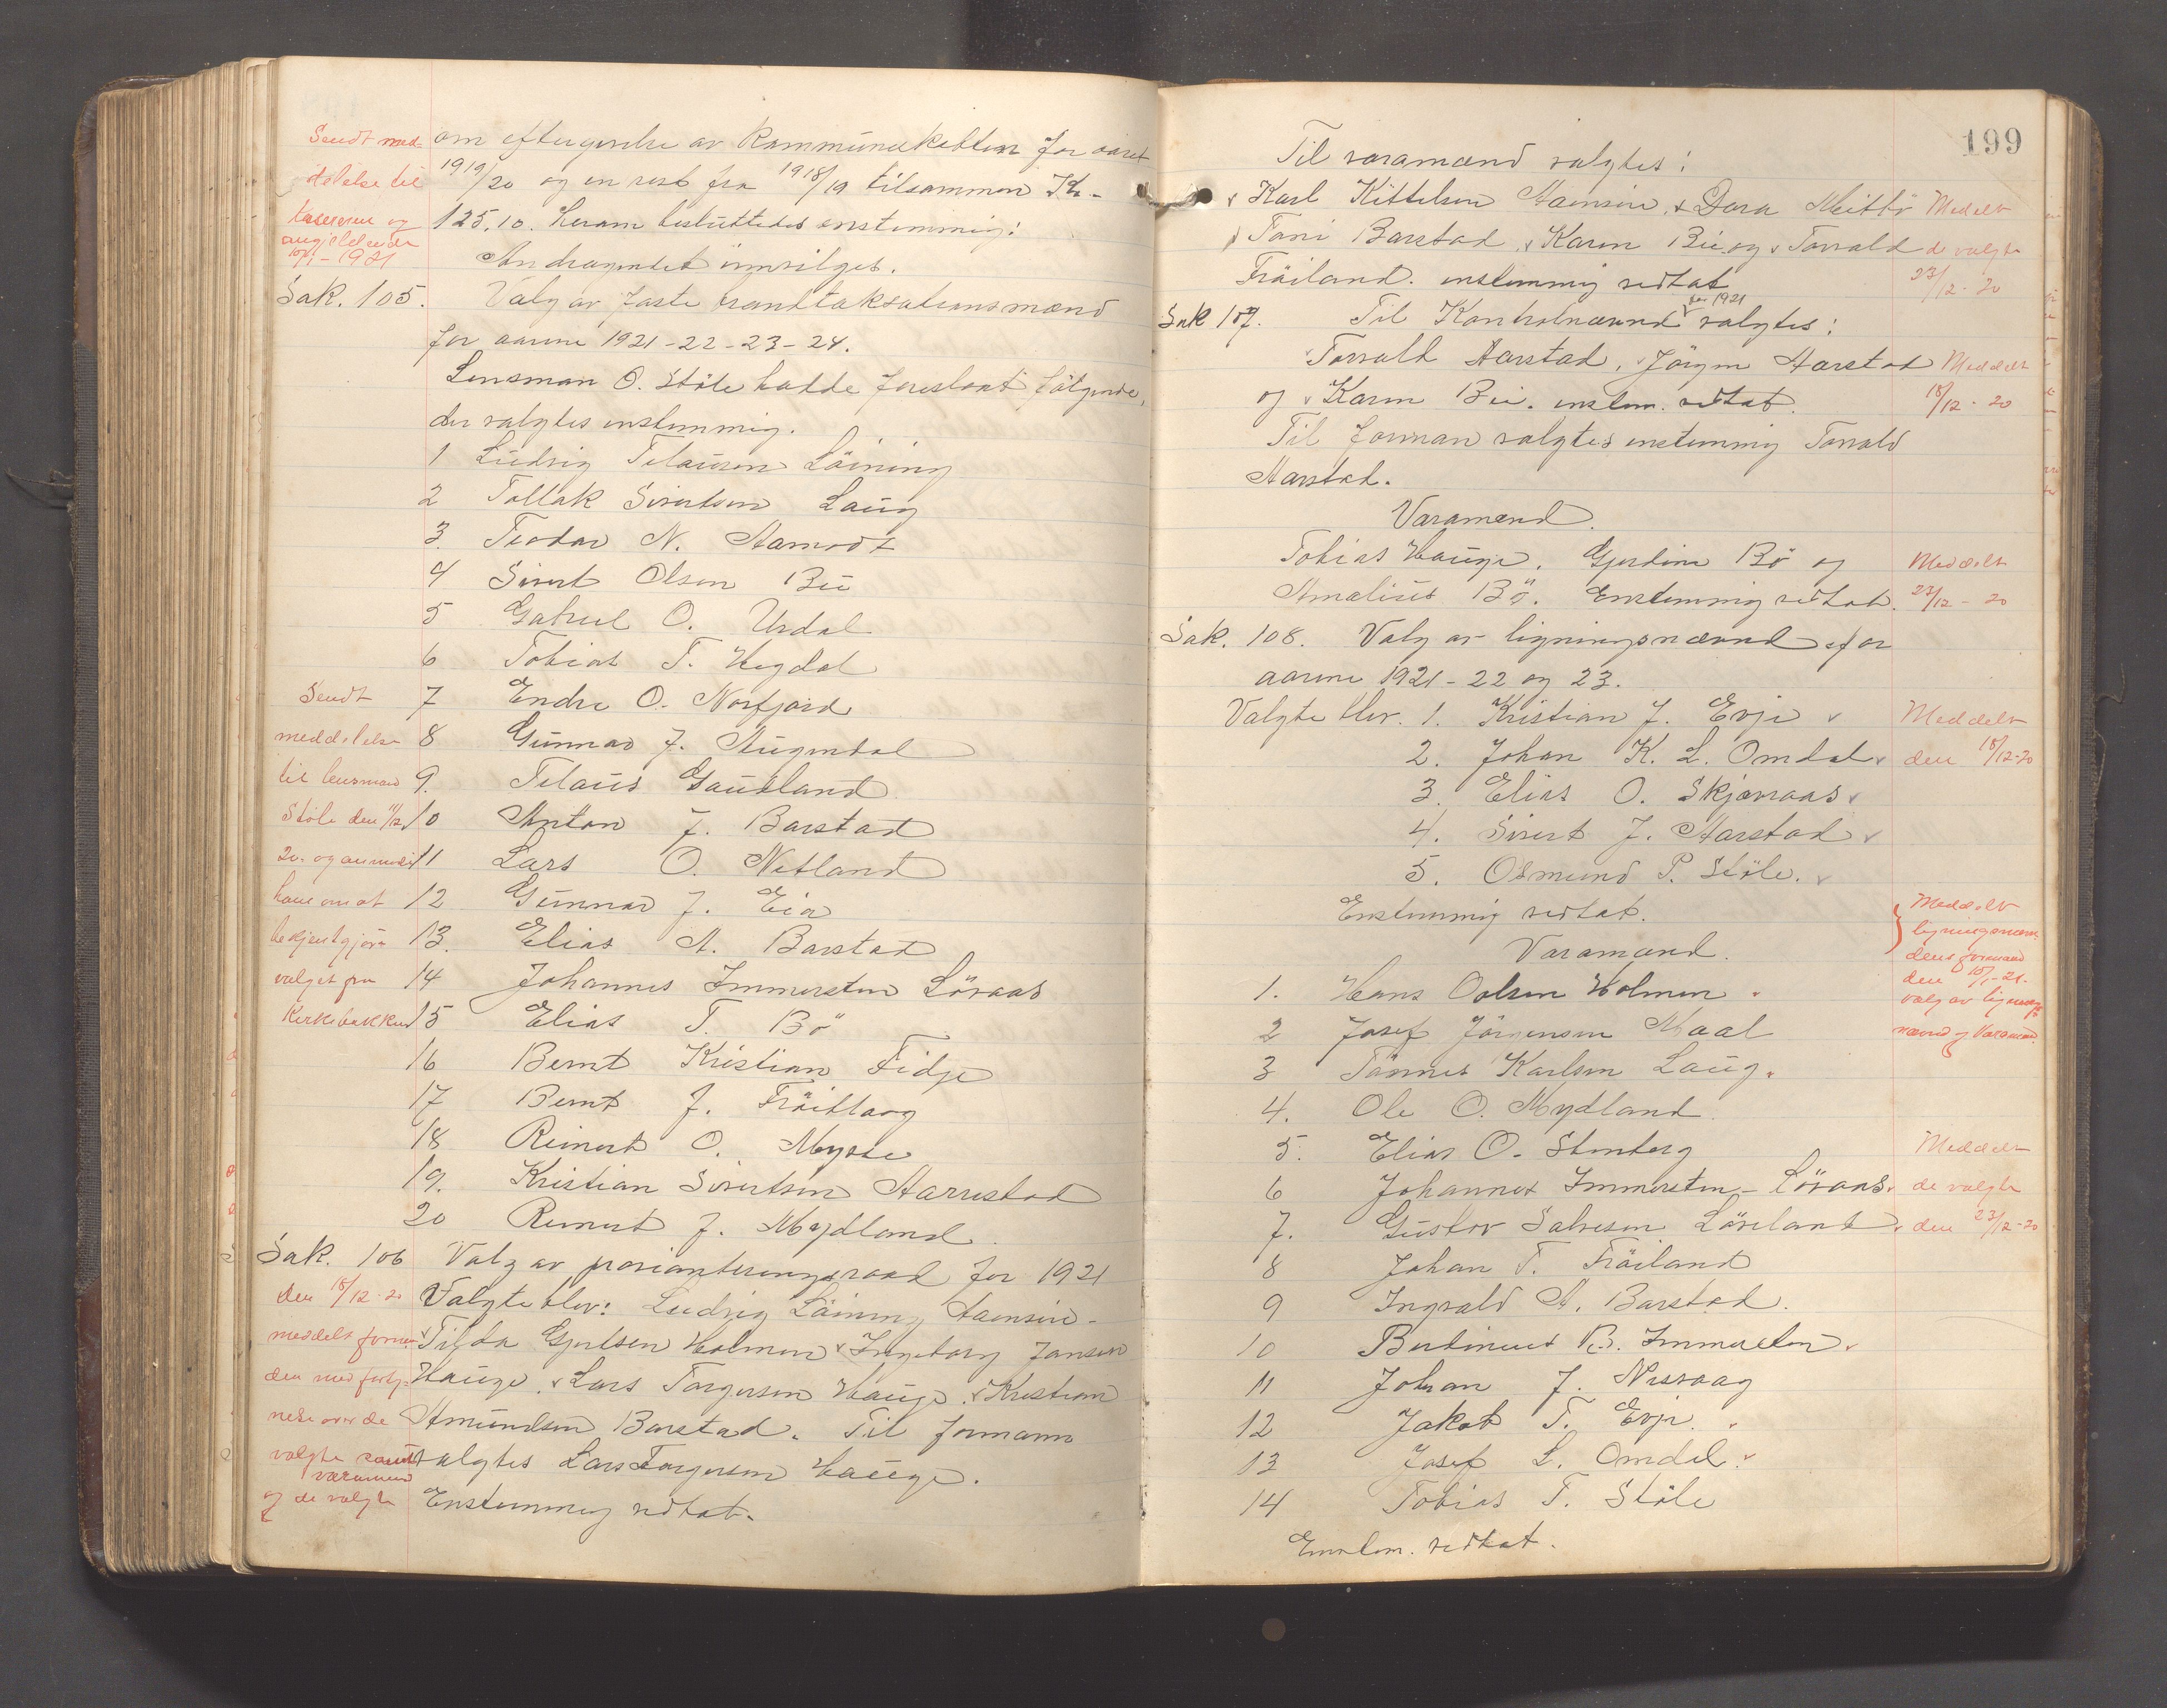 om eftergivelse av kommuneskatten for aaret
1919/20 og en rest fra 1918/19 tilsammen Kr.
125,10. Herom besluttedes enstemmig:
Andragendet innvilges.
Sendt med-
delelse til
kasereren og
angjeldende
10/1 - 1921
Sak. 105. Valg av faste branntaksationsmænd
for aarene 1921-22-23-24.
Lensman O. Stöle hadde foreslaat følgende,
der valgtes enstemmig.
1 Ludvig Telausen Löining
2 Tollak Sivertsen Laug
3. Teodor N. Aamodt
4 Sivert Olsen Bu
5 Gabriel O. Urdal
6 Tobias T. Hegdal
7 Endre O. Norfjord
8 Gunnar J. Augendal
9. Telaus Gautland
10 Anton J. Barstad
11 Lars O. Netland
12 Gunnar J. Eia
13. Elias A. Barstad
14 Johannes Immerstein Lövaas
15 Elias T. Bö
16 Bernt Kristian Fidje
17 Bernt J. Fröitlaog
18 Reinert O. Mysse
19. Kristian Sivertsen Aarrestad
20 Reinert J. Mydland
Sendt
meddelelse
til lensmand
Stöle den 11/12
20. og anmodet
ham om at
bekjentgjöre
valget fra
Kirkebakken
Sak. 106 Valg av provianteringsraad for 1921
Valgte blev: Ludvig Löining Aamsin-
Tilda Gjertsen Holmen Ingeborg Jansen
Hauge, Lars Torgersen Hauge, Kristian
Amundsen Barstad. Til formann
valgtes Lars Torgersen Hauge.
Enstemmig vedtat.
den 18/12-20
meddelt forman-
den med forteg-
nelse over de
valgte samt
varamend
og de valgte
199
Til varamænd valgtes:
Karl Kittelsen Aamsin, Dora Meitbö
Toni Barstad, Karen Bu og Torvald
Fröiland. enstemmig vedtat
Meddelt
de valgte
23/12-20
Sak 107. Til Kontrolnævnd for 1921 valgtes:
Torvald Aarstad, Jörgen Aarstad
og Karen Bu. enstem. vedtat.
Til forman valgtes enstemmig Torvald
Aarstad.
Meddelt
18/12-20
Varamænd.
Tobias Hauge, Gjertine Bö og
Amalius Bö. Enstemmig vedtat.
Meddelt
23/12-20
Sak. 108. Valg av ligningsnævnd for
aarene 1921-22 og 23.
Valgte blev. 1. Kristian J. Evje
2. Johan K. L. Omdal
3. Elias O. Skjævraas
4. Sivert J. Aarstad
5. Osmund P. Stöle.
Enstemmig vedtat.
Meddelt
den 18/12-20
Varamænd.
1. Hans Oolsen Holmen
2 Josef Jörgensen Maal
3 Tönnes Karlsen Laug.
4. Ole O. Mydland
5. Elias O. Stenberg
6 Johannes Immerstein-Lövaas
7. Gustav Salvesen Lövland
8 Johan T. Fröiland
9 Ingvald A. Barstad.
10 Bertinius B. Immerstein
11 Johan J. Nesvaag
12 Jakob T. Evje
13 Josef L. Omdal.
14 Tobias T. Stöle
Enstem. vedtat.
Meddelt
ligningsnævn-
dens formand
den 10/1-21.
valg av lignings
nævnd og Varamænd
Meddelt
de valgte
den 23/12-20